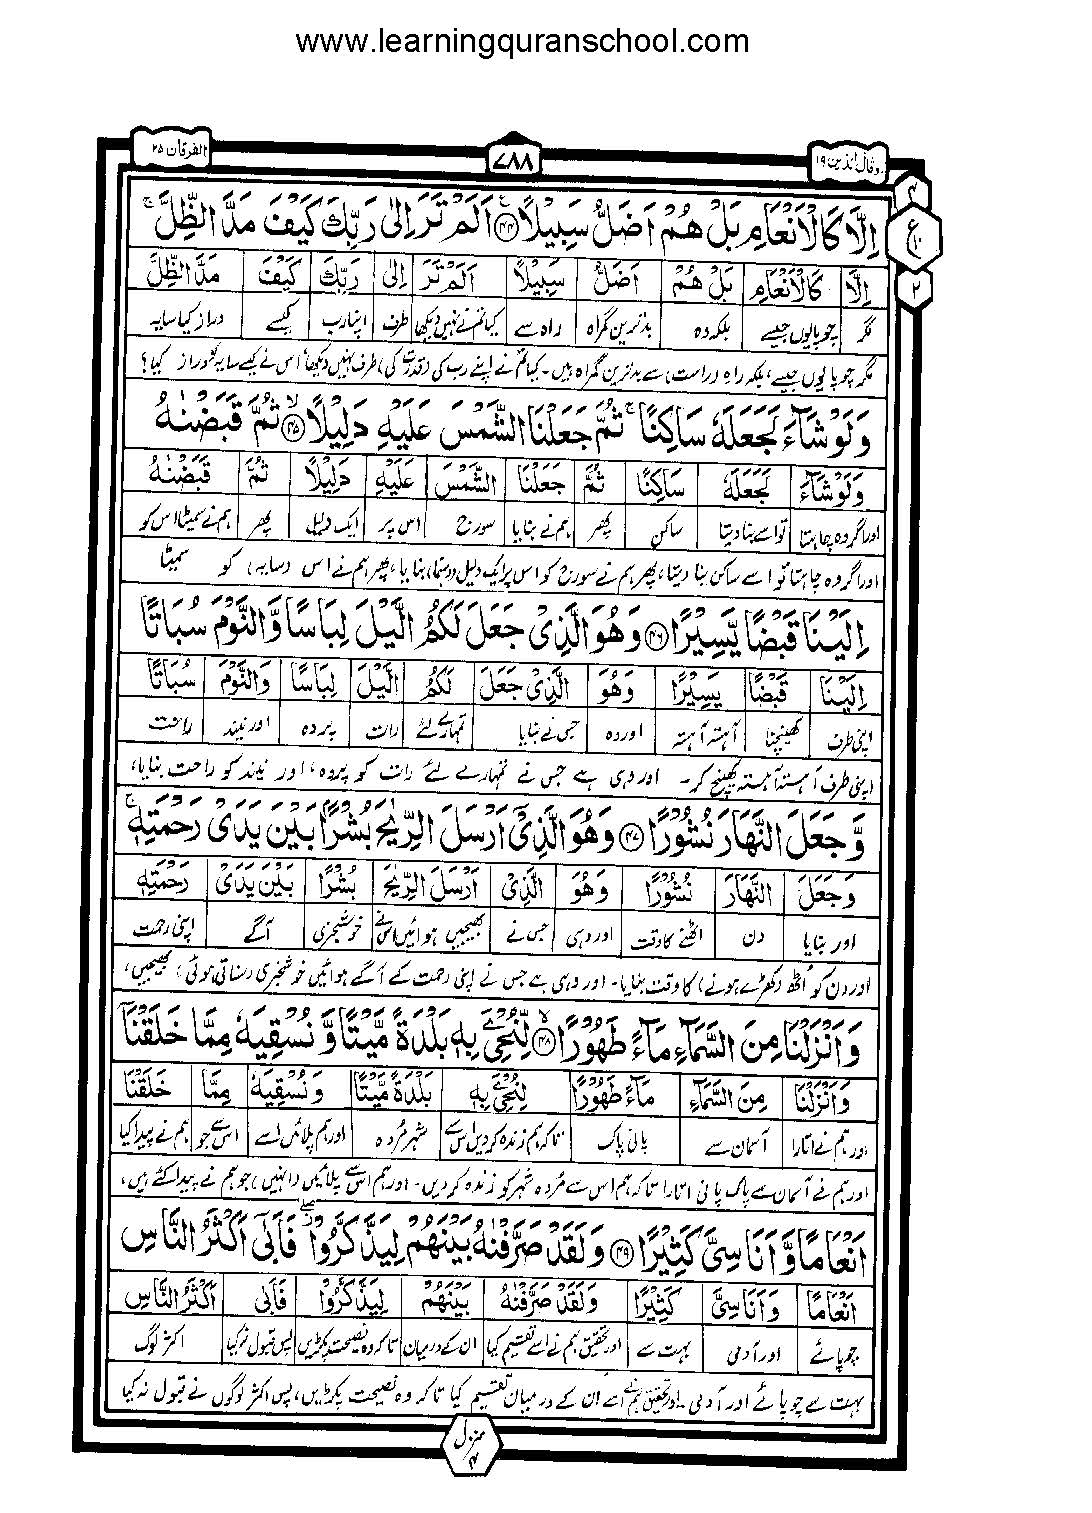 www.learningquranschool.com
وقال الذین ۱۹
۷۸۸
الفرقان ۲۵
۴
ع ۱۰
۲
اِلَّا كَالْاَنْعَامِ بَلْ هُمْ اَضَلُّ سَبِیْلًا ﴿۴۴﴾ اَلَمْ تَرَ اِلٰی رَبِّكَ كَیْفَ مَدَّ الظِّلَّ ۚ
اِلَّا كَالْاَنْعَامِ بَلْ هُمْ اَضَلُّ سَبِیْلًا اَلَمْ تَرَ اِلٰی رَبِّكَ كَیْفَ مَدَّ الظِّلَّ
مگر چوپایوں جیسے بلکہ وہ بدترین گمراہ راہ سے کیا تم نے نہیں دیکھا طرف اپنا رب کیسے دراز کیا سایہ
مگر چوپایوں جیسے، بلکہ راہِ (راست) سے بدترین گمراہ ہیں۔ کیا تم نے اپنے رب کی (قدرت کی) طرف نہیں دیکھا اس نے کیسے سایہ کو دراز کیا؟
وَلَوْ شَآءَ لَجَعَلَهٗ سَاكِنًا ۚ ثُمَّ جَعَلْنَا الشَّمْسَ عَلَیْهِ دَلِیْلًا ﴿۴۵﴾ ۙ ثُمَّ قَبَضْنٰهُ
وَلَوْ شَآءَ لَجَعَلَهٗ سَاكِنًا ثُمَّ جَعَلْنَا الشَّمْسَ عَلَیْهِ دَلِیْلًا ثُمَّ قَبَضْنٰهُ
اور اگر وہ چاہتا تو اسے بنا دیتا ساکن پھر ہم نے بنایا سورج اس پر ایک دلیل پھر ہم نے سمیٹا اس کو
اور اگر وہ چاہتا تو اسے ساکن بنا دیتا، پھر ہم نے سورج کو اس پر ایک دلیل (رہنما) بنایا، پھر ہم نے اس (سایہ) کو سمیٹا
اِلَیْنَا قَبْضًا یَّسِیْرًا ﴿۴۶﴾ وَهُوَ الَّذِیْ جَعَلَ لَكُمُ الَّیْلَ لِبَاسًا وَّالنَّوْمَ سُبَاتًا
اِلَیْنَا قَبْضًا یَسِیْرًا وَهُوَ الَّذِیْ جَعَلَ لَكُمُ الَّیْلَ لِبَاسًا وَالنَّوْمَ سُبَاتًا
اپنی طرف کھینچنا آہستہ آہستہ اور وہ جس نے بنایا تمہارے لئے رات پردہ اور نیند راحت
اپنی طرف آہستہ آہستہ کھینچ کر۔ اور وہی ہے جس نے تمہارے لئے رات کو پردہ، اور نیند کو راحت بنایا،
وَّجَعَلَ النَّهَارَ نُشُوْرًا ﴿۴۷﴾ وَهُوَ الَّذِیْۤ اَرْسَلَ الرِّیٰحَ بُشْرًۢا بَیْنَ یَدَیْ رَحْمَتِهٖ ۚ
وَجَعَلَ النَّهَارَ نُشُوْرًا وَهُوَ الَّذِیْ اَرْسَلَ الرِّیٰحَ بُشْرًا بَیْنَ یَدَیْ رَحْمَتِهٖ
اور بنایا دن اٹھنے کا وقت اور وہی جس نے بھیجیں ہوائیں اس نے خوشخبری آگے اپنی رحمت
اور دن کو اُٹھ (کھڑے ہونے) کا وقت بنایا۔ اور وہی ہے جس نے اپنی رحمت کے آگے ہوائیں خوشخبری (سناتی ہوئی) بھیجیں،
وَاَنْزَلْنَا مِنَ السَّمَآءِ مَآءً طَهُوْرًا ﴿۴۸﴾ ۙ لِّنُحْیِۦَ بِهٖ بَلْدَةً مَّیْتًا وَّنُسْقِیَهٗ مِمَّا خَلَقْنَاۤ
وَاَنْزَلْنَا مِنَ السَّمَآءِ مَآءً طَهُوْرًا لِنُحْیِۦَ بِهٖ بَلْدَةً مَّیْتًا وَنُسْقِیَهٗ مِمَّا خَلَقْنَا
اور ہم نے اتارا آسمان سے پانی پاک تاکہ ہم زندہ کر دیں اس سے شہر مردہ اور ہم پلائیں اسے اس سے جو ہم نے پیدا کیا
اور ہم نے آسمان سے پاک پانی اتارا تاکہ ہم اس سے مُردہ شہر کو زندہ کر دیں۔ اور ہم اس سے پلائیں (انہیں) جو ہم نے پیدا کئے ہیں،
اَنْعَامًا وَّاَنَاسِیَّ كَثِیْرًا ﴿۴۹﴾ وَلَقَدْ صَرَّفْنٰهُ بَیْنَهُمْ لِیَذَّكَّرُوْا ۖ فَاَبٰۤی اَكْثَرُ النَّاسِ
اَنْعَامًا وَاَنَاسِیَّ كَثِیْرًا وَلَقَدْ صَرَّفْنٰهُ بَیْنَهُمْ لِیَذَّكَّرُوْا فَاَبٰی اَكْثَرُ النَّاسِ
چوپائے اور آدمی بہت سے اور تحقیق ہم نے اسے تقسیم کیا ان کے درمیان تاکہ وہ نصیحت پکڑیں پس قبول نہ کیا اکثر لوگ
بہت سے چوپائے اور آدمی۔ اور تحقیق ہم نے اسے ان کے درمیان تقسیم کیا تاکہ وہ نصیحت پکڑیں، پس اکثر لوگوں نے قبول نہ کیا
منزل ۴